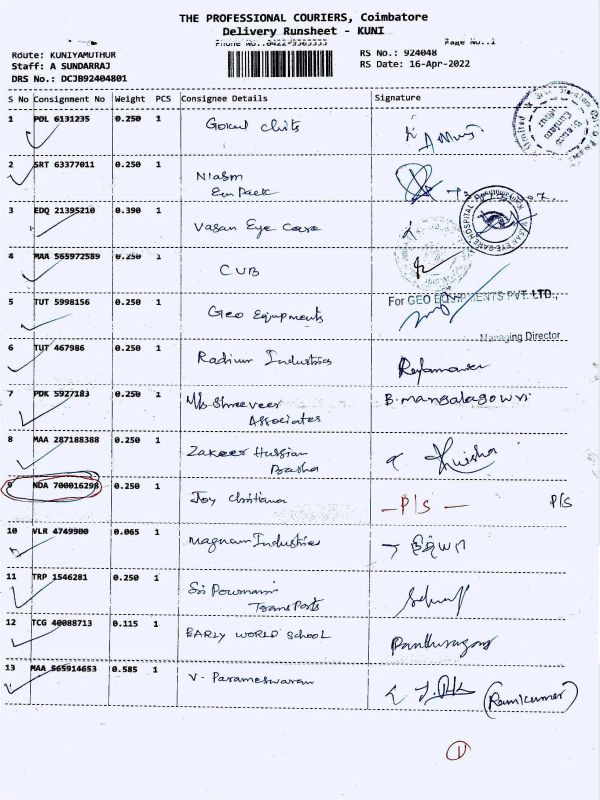 THE PROFESSIONAL COURIERS, Coimbatore
Delivery Runsheet - KUNI
Phone No.:0422-9363333 Page No.:1
Route: KUNIYAMUTHUR RS No.: 924048
Staff: A SUNDARRAJ RS Date: 16-Apr-2022
DRS No.: DCJB92404801
S No Consignment No Weight PCS Consignee Details Signature
1 POL 6131235 0.250 1 Gokul Chits
2 SRT 63377011 0.250 1
3 EDQ 21395210 0.390 1 Vasan Eye Care
VASAN EYE CARE HOSPITAL
4 MAA 565972589 0.250 1 CUB
5 TUT 5998156 0.250 1 Geo Equipments
For GEO EQUIPMENTS PVT. LTD.,
Managing Director
6 TUT 467986 0.250 1 Radium Industries
7 PDK 5927183 0.250 1 M/s Shreeveer B. Mangalagowri
Associates
8 MAA 287188388 0.250 1 Zakeer Hussian
Basha
9 NDA 700016298 0.250 1 Joy Christiana — P/S — P/S
10 VLR 4749900 0.065 1 Magnam Industries
11 TRP 1546281 0.250 1 Sri Powmani
Transports
12 TCG 40088713 0.115 1 EARLY WORLD SCHOOL
13 MAA 565914653 0.585 1 V. Parameswaran (Ramkumar)
1